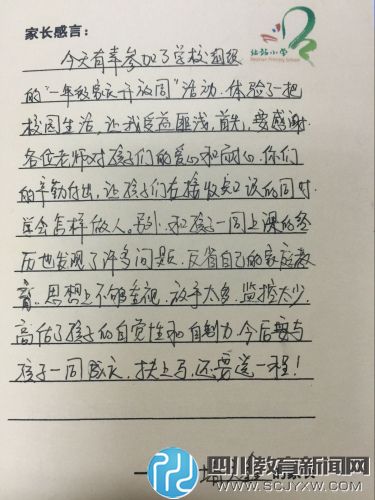 家长感言：
今天有幸参加了学校组织
的“一年级家长开放周”活动，体验了一把
校园生活，让我受益匪浅，首先，要感谢
各位老师对孩子们的爱心和耐心，你们
的辛勤付出，让孩子们在接收知识的同时
学会怎样做人。另外，和孩子一同上课的经
历也发现了许多问题，反省自己的家庭教
育，思想上不够重视，放手太多，监控太少，
高估了孩子的自觉性和自制力，今后要与
孩子一同成长，扶上马，还要送一程！
北站小学
四川教育新闻网
WWW.SCJYXW.COM